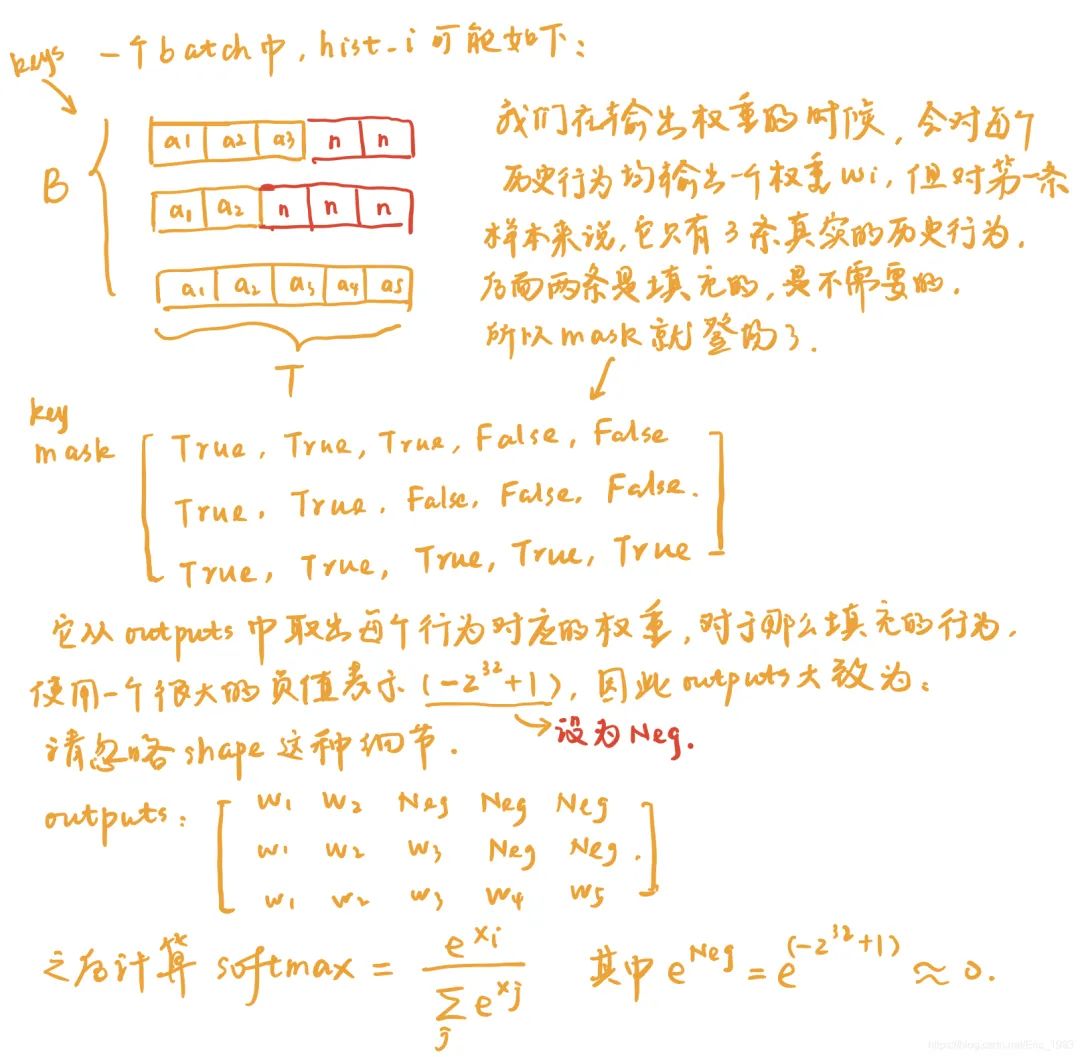 keys 一个batch中，hist_i可能如下：
a1 a2 a3 n n
B
a1 a2 n n n
a1 a2 a3 a4 a5
T
我们在输出权重的时候，会对每个
历史行为均输出一个权重wi，但对第一条
样本来说，它只有3条真实的历史行为，
后面两条是填充的，是不需要的.
所以mask就登场了.
key
mask
True, True, True, False, False
True, True, False, False, False.
True, True, True, True, True
它从outputs中取出每个行为对应的权重，对于那么填充的行为，
使用一个很大的负值表示(-2^32+1)，因此outputs大致为：
设为Neg.
请忽略shape这种细节.
outputs:
w1 w2 Neg Neg Neg
w1 w2 w3 Neg Neg.
w1 w2 w3 w4 w5
之后计算 softmax = e^xi / ∑j e^xj 其中 e^Neg = e^(-2^32+1) ≈ 0.